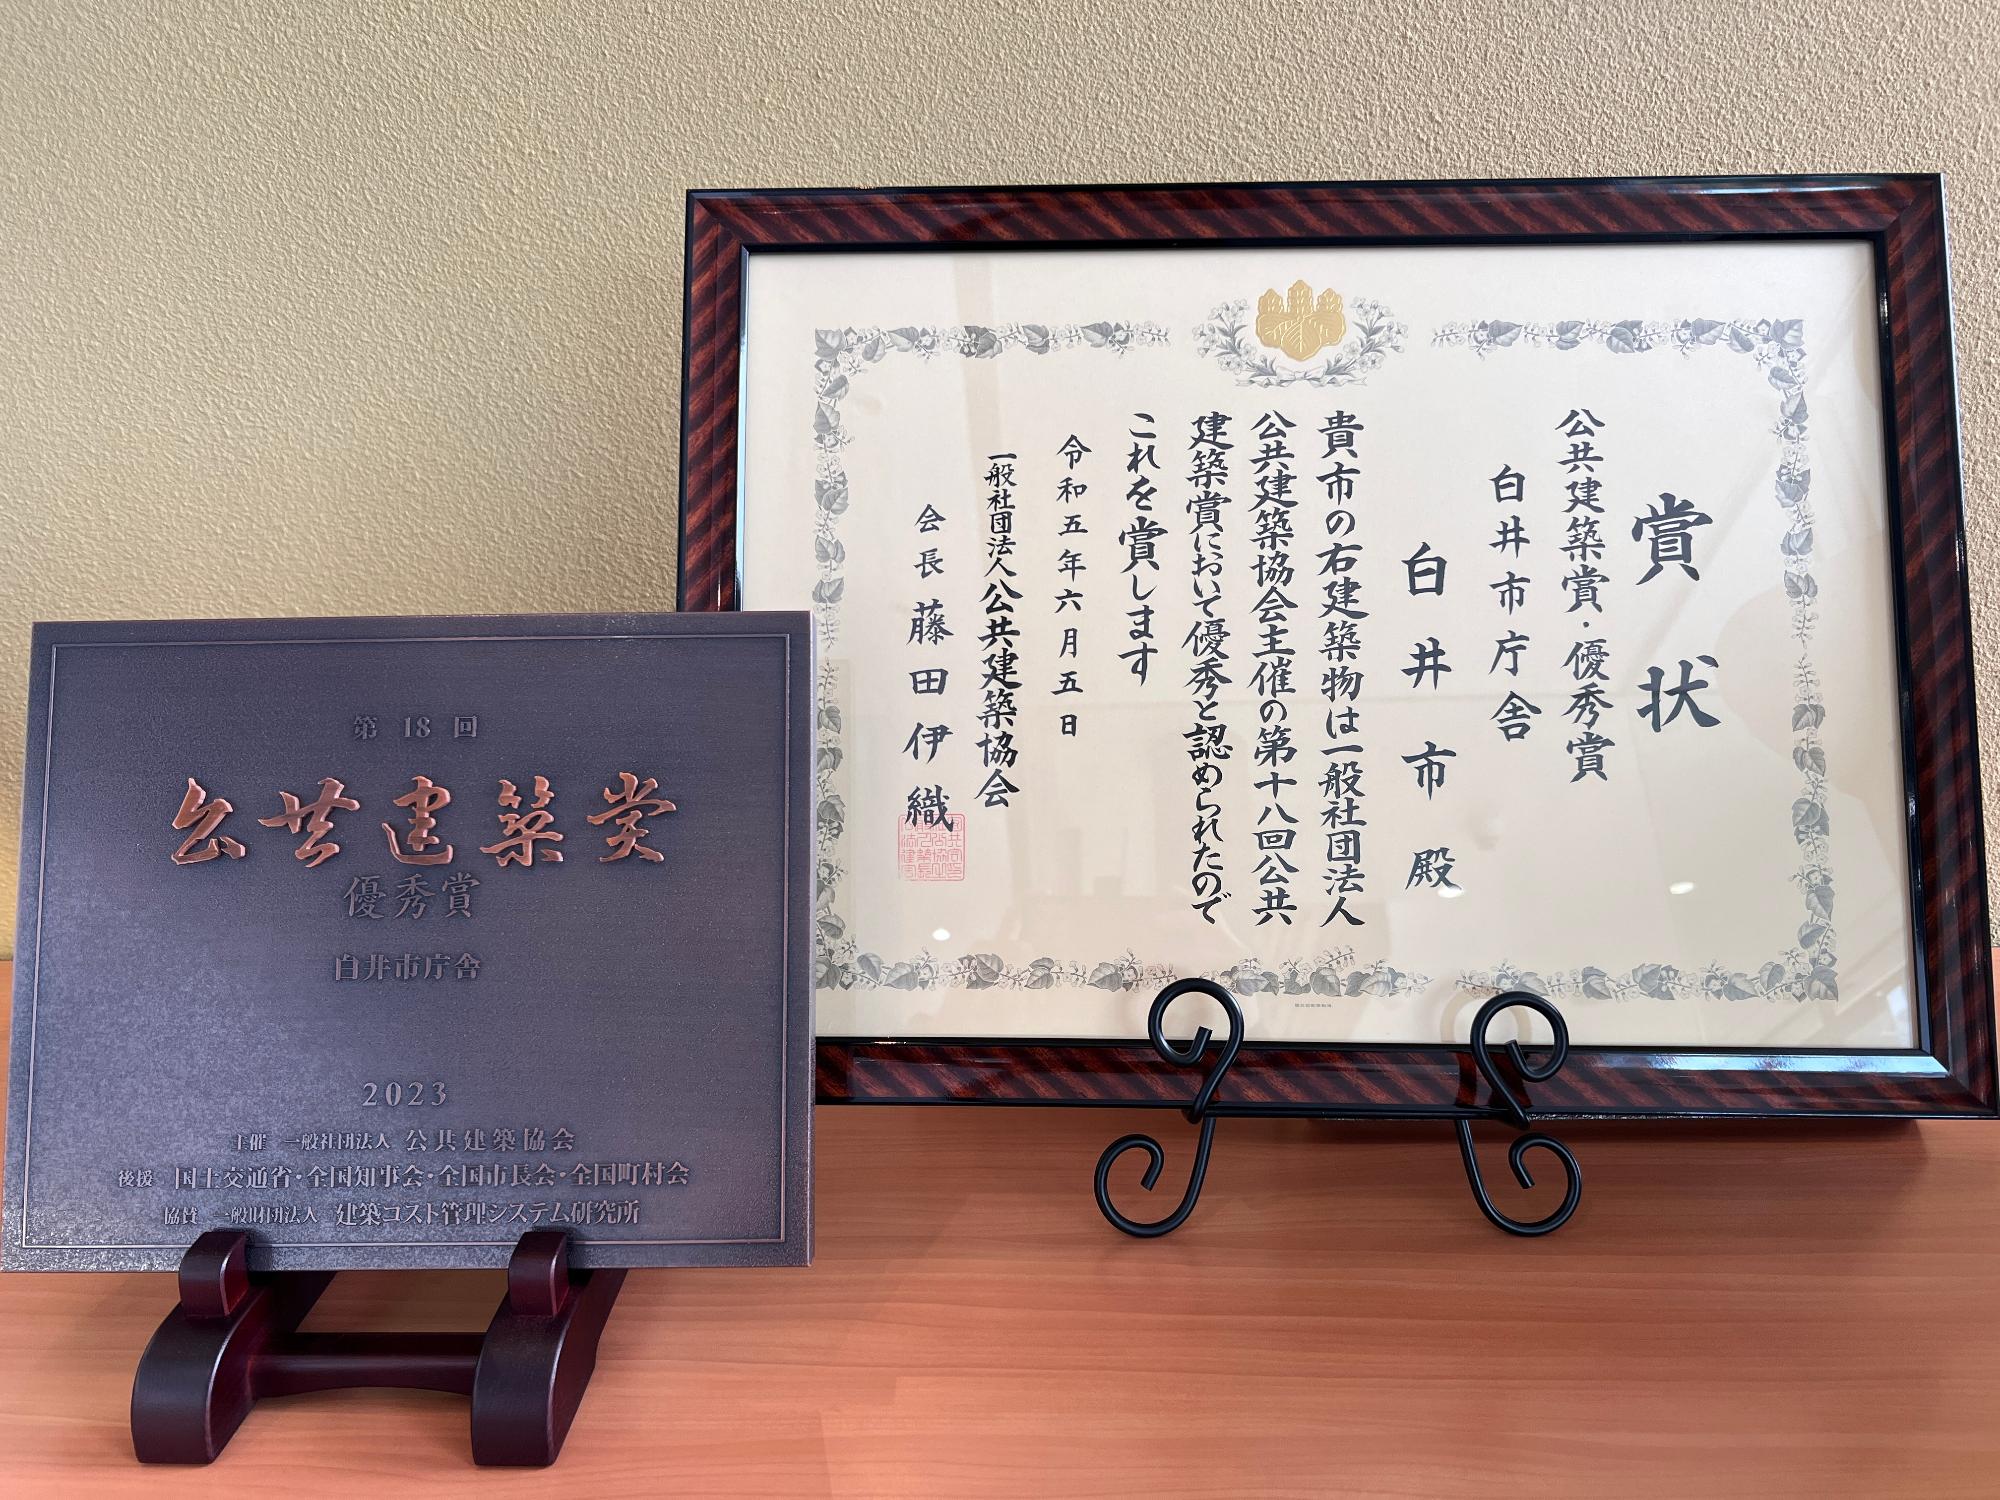 第 18 回
公共建築賞
優秀賞
白井市庁舎
2023
主催 一般社団法人 公共建築協会
後援 国土交通省・全国知事会・全国市長会・全国町村会
協賛 一般財団法人 建築コスト管理システム研究所
賞状
公共建築賞・優秀賞
白井市庁舎
白井市殿
貴市の右建築物は一般社団法人
公共建築協会主催の第十八回公共
建築賞において優秀と認められたので
これを賞します
令和五年六月五日
一般社団法人公共建築協会
会長 藤田伊織